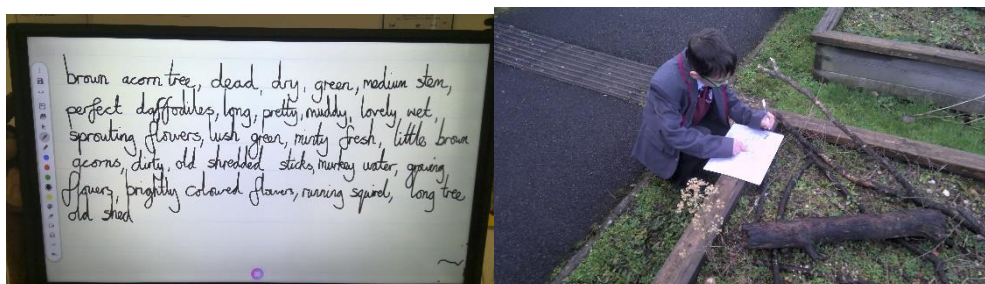 brown acorn tree, dead, dry, green, medium stem,
perfect daffodiles, long, pretty, muddy, lovely, wet,
sprouting flowers, lush green, minty fresh, little brown
acorns, dirty, old shredded sticks, murkey water, growing
flowers, brightly coloured flowers, running squirel, long tree
old shed